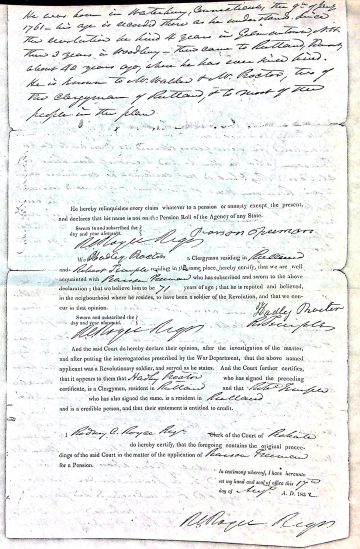 He was born in Waterbury, Connecticut, the 9th of
1761 - his age is recorded there as he understands. Since
the revolution he lived 4 years in N.H.
then 3 years in - then came to Rutland,
about 40 years ago, where he has ever since lived.
He is known to Mr. Walker & Mr. Proctor, two of
the Clergyman of Rutland, & to most of the
people in the place
He hereby relinquishes every claim whatever to a pension or annuity except the present,
and declares that his name is not on the Pension Roll of the Agency of any State.
Sworn to and subscribed the
day and year aforesaid.
Pearson Freeman
R. C. Royce Regr
We Hadley Proctor a Clergyman residing in Rutland
and Robert Temple residing in the same place, hereby certify, that we are well
acquainted with Pearson Freeman who has subscribed and sworn to the above
declaration; that we believe him to be 71 years of age; that he is reputed and believed,
in the neighbourhood where he resides, to have been a soldier of the Revolution, and that we con-
cur in that opinion.
Hadley Proctor
Sworn and subscribed the
day and year aforesaid.
R Temple
R C Royce Regr
And the said Court do hereby declare their opinion, after the investigation of the matter,
and after putting the interrogatories prescribed by the War Department, that the above named
applicant was a Revolutionary soldier, and served as he states. And the Court further certifies,
that it appears to them that Hadley Proctor who has signed the preceding
certificate, is a Clergyman, resident in Rutland and that Robt Temple
who has also signed the same, is a resident in Rutland
and is a credible person, and that their statement is entitled to credit.
I Rodney C. Royce Regr Clerk of the Court of Probate
do hereby certify, that the foregoing contains the original procee-
dings of the said Court in the matter of the application of Pearson Freeman
for a Pension.
In testimony whereof, I have hereunto
set my hand and seal of office this 17th
day of Augt A. D. 1832
R C Royce Regr